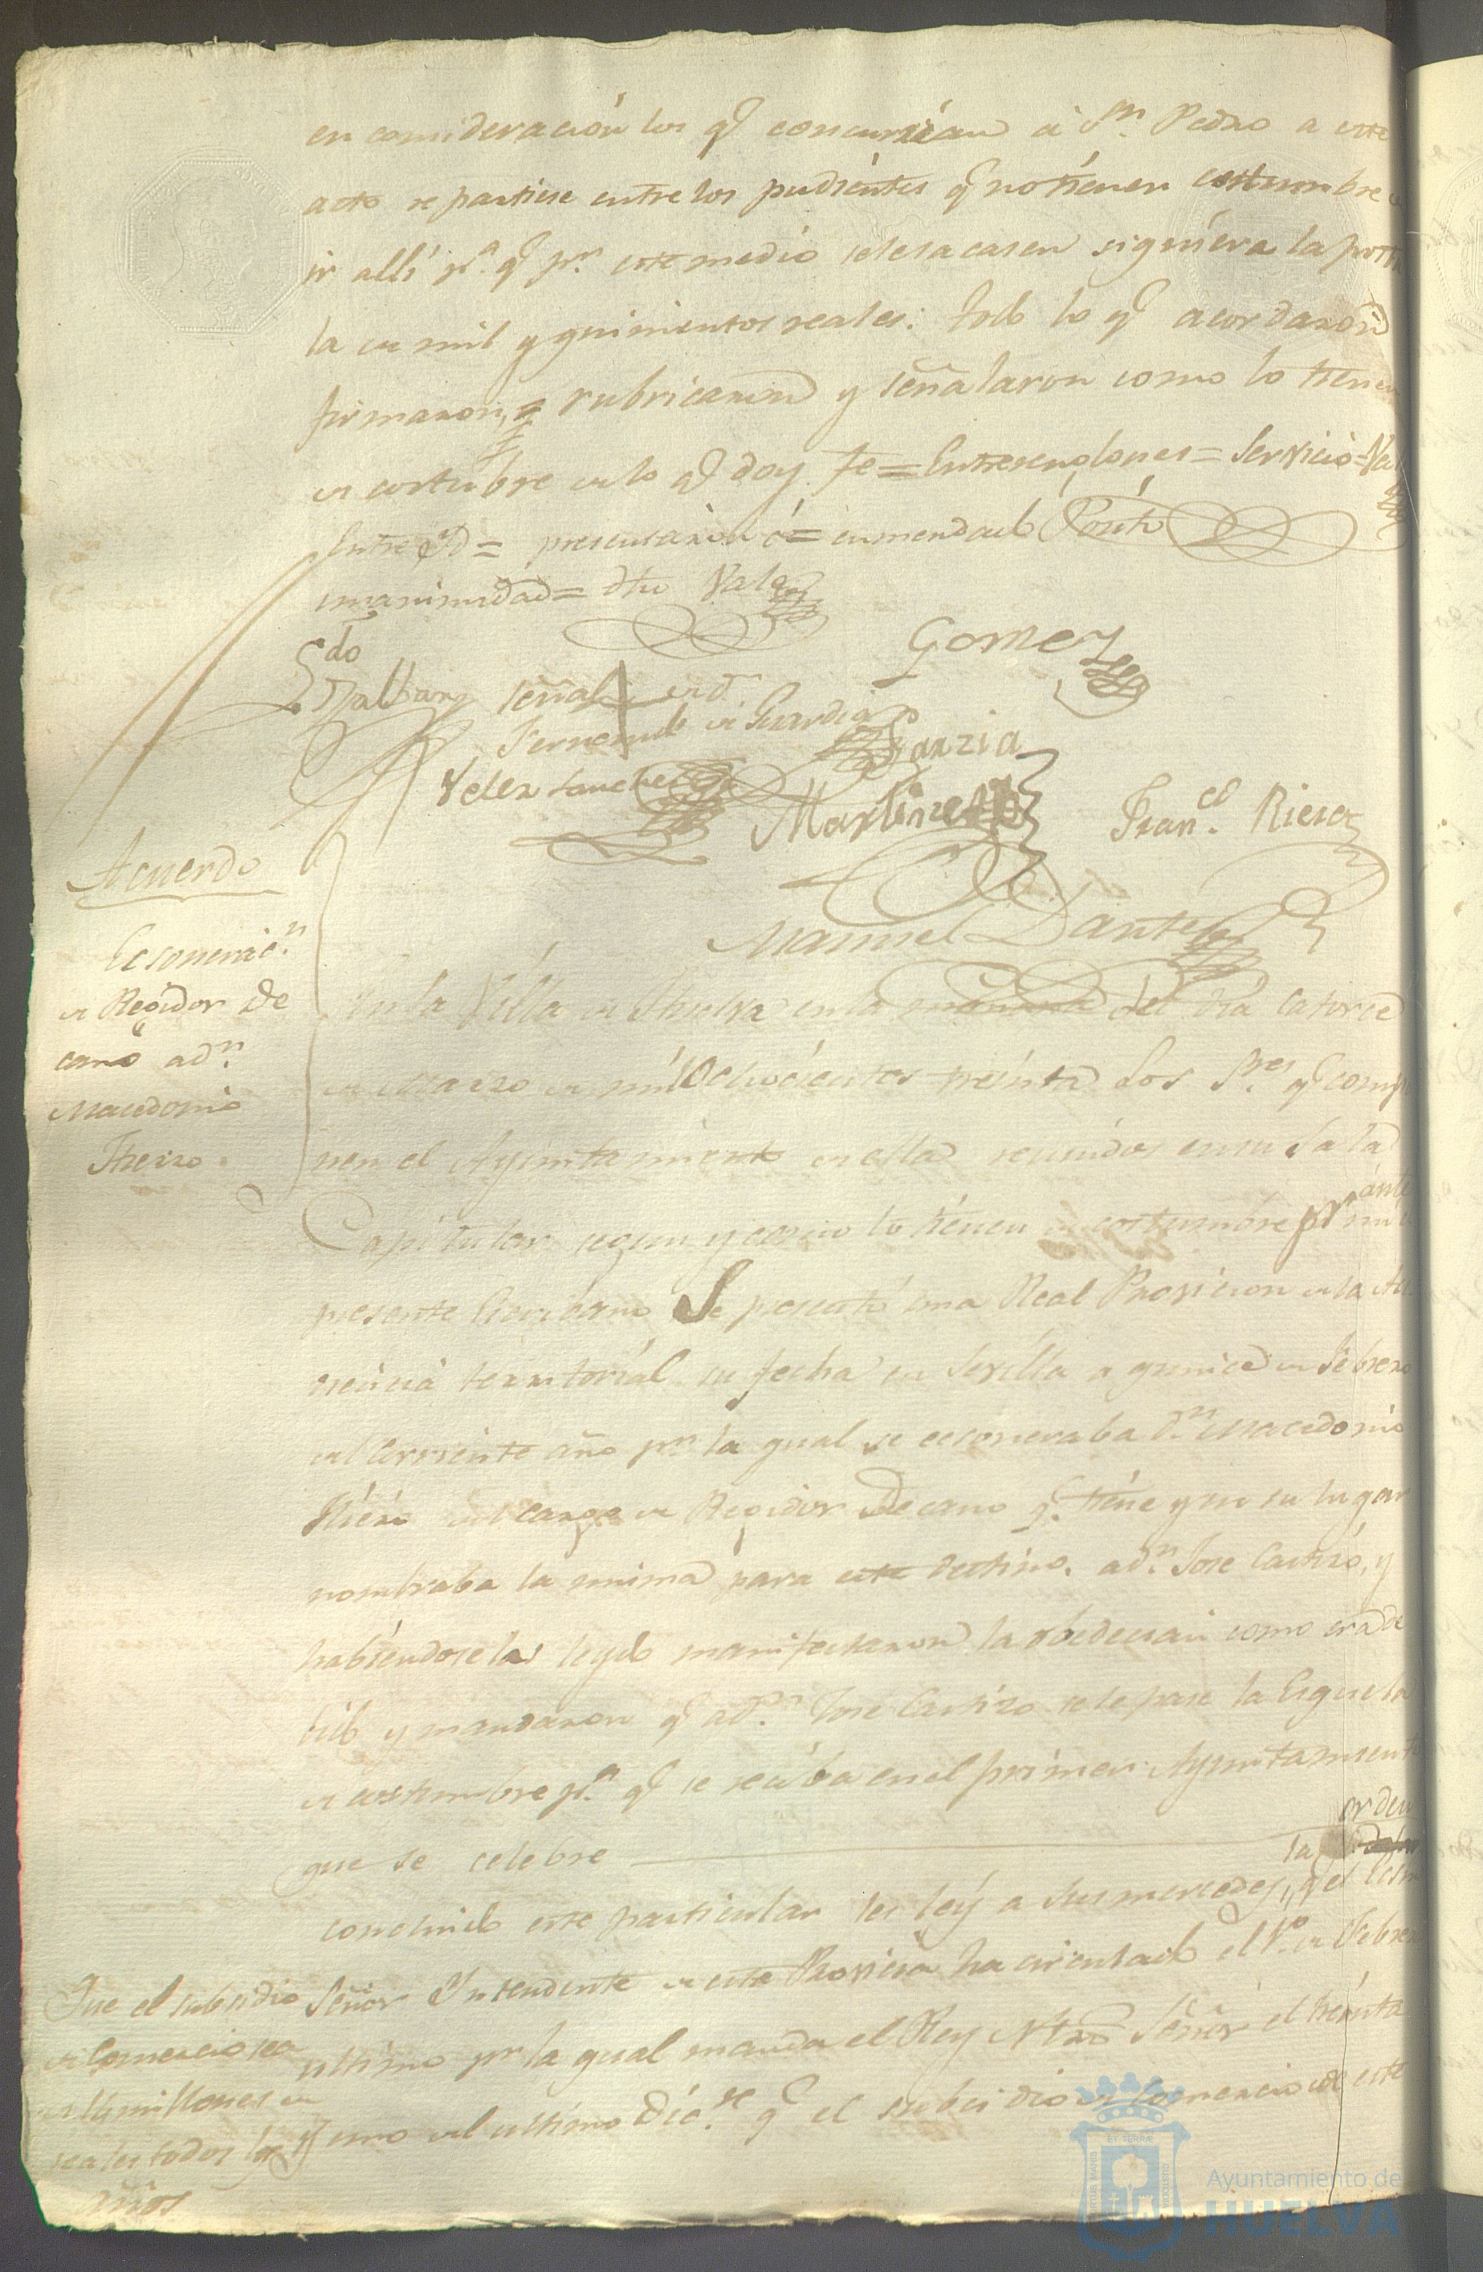 en consideración los q.e concurrían á S.n Pedro a este
acto repartiese entre los pudientes q.e no tienen costumbre
ir allí p.a q.e p.r este medio se le sacasen siguiera la
la de mil y quinientos reales: todo lo q.e acordaron
firmaron, rubricaron y señalaron como lo tienen
de costumbre de lo q.e doy fe = Entrerenglones = Servicio = Vale
Entre id = presentaron á = enmendado
unanimidad = dho Vale
Gomez
señal de d.n
Fernando de Guardia
Garzia
Velez Sanchez
Martinez
Fran.co Riera
Manuel Dante
Acuerdo
Ecsonerac.n
de Regidor De
cano a d.n
Macedonio
Fierro.
En la Villa de Huelva en la mañana del dia Catorce
de Marzo de mil Ochocientos treinta Los S.res q.e compo
nen el Ayuntamiento de ella reunidos en su Sala
Capitular segun y como lo tienen de costumbre p.r ante mi el
presente Escribano Se presentó una Real Provicion de la Au
diencia territorial su fecha en Sevilla a quince de Febrero
del Corriente año p.r la qual se ecsoneraba d.n Macedonio
Fierro del cargo de Regidor Decano q.e tiene y en su lugar
nombraba la misma para este destino. a d.n Jose Castizo, y
habiendosela leydo manifestaron la obedecian como era de
bido y mandaron q.e a d.n Jose Castizo se le pase la Esquela
de costumbre p.a q.e se reciba en el primer Ayuntamiento
que se celebre
concluido este particular les leý a sus mercedes, la orden q.e el
Señor Yntendente de esta Provincia ha circulado el 1.o de Febrero
ultimo p.r la qual manda el Rey Ntro Señor el treinta
y uno del ultimo Dic.re q.e el subsidio de Comercio de este
Que el subsidio
de Comercio sea
de millones de
reales todos los
años
Ayuntamiento de
HUELVA